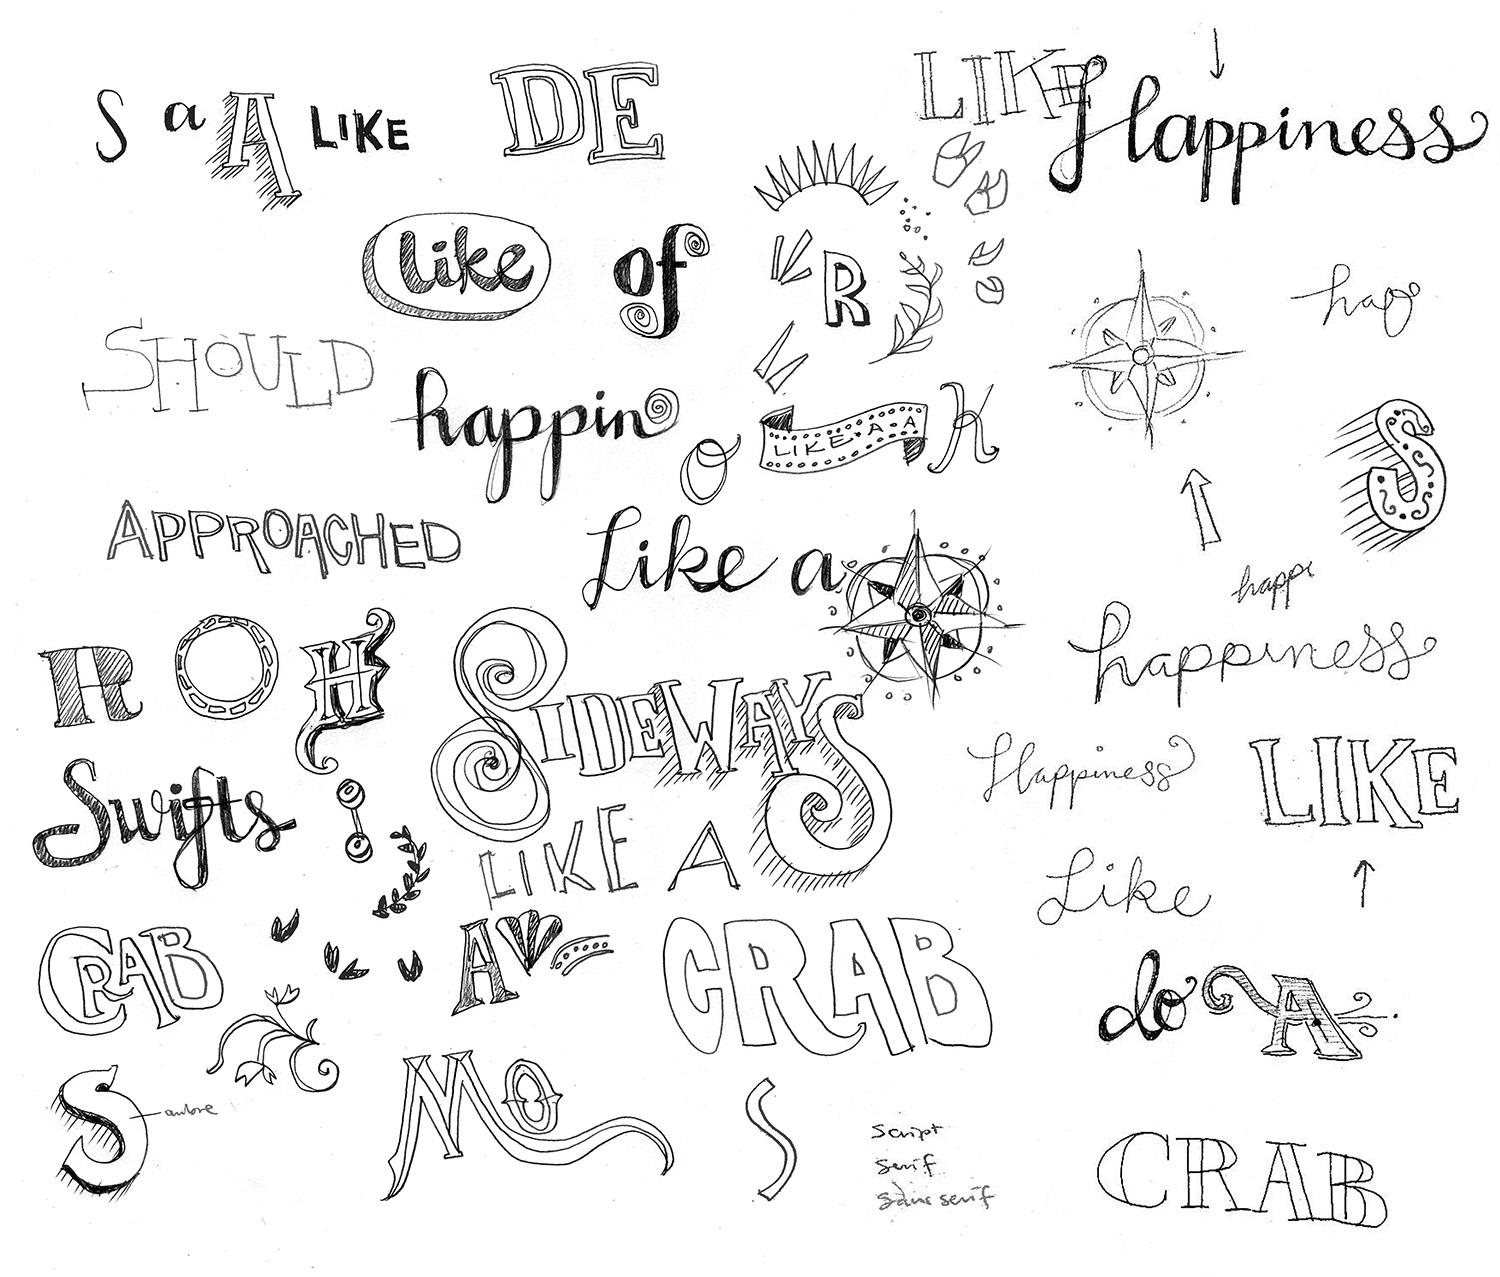 S a A LIKE DE LIKE Happiness
like of R hap
SHOULD happin O LIKE A A K S
APPROACHED Like a happi
R O H SIDEWAYS happiness
Swifts Happiness LIKE
LIKE A Like
CRAB A CRAB do A
S ombre MO S script CRAB
serif
sans serif